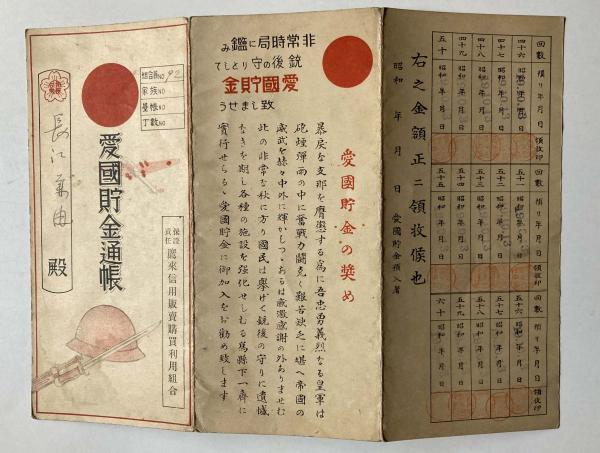 組合員NO 92
家族NO
臺帳NO
丁数NO
愛國貯金通帳
殿
保證責任
鷹來信用販賣購買利用組合
非常時局に鑑み
銃後の守りとして
愛國貯金
致しませう
愛國貯金の奬め
暴戻な支那を膺懲する為に吾忠勇義烈なる皇軍は
砲煙彈雨の中に奮戰力闘克く艱苦缺乏に堪へ帝國の
威武を赫々中外に輝かしつゝあるは感激感謝の外ありませむ
此の非常な秋に方り國民は擧げて銃後の守りに遺憾
なきを期し各種の施設を強化せしむる為縣下一齊に
實行せらるゝ愛國貯金に御加入をお勸め致します
回数 預リ年月日 領收印
四十六 昭和 年 月 日
四十七 昭和 年 月 日
四十八 昭和 年 月 日
四十九 昭和 年 月 日
五十 昭和 年 月 日
回数 預リ年月日 領收印
五十一 昭和 年 月 日
五十二 昭和 年 月 日
五十三 昭和 年 月 日
五十四 昭和 年 月 日
五十五 昭和 年 月 日
回数 預リ年月日 領收印
五十六 昭和 年 月 日
五十七 昭和 年 月 日
五十八 昭和 年 月 日
五十九 昭和 年 月 日
六十 昭和 年 月 日
右之金額正ニ領收候也
昭和 年 月 日
愛國貯金預入署